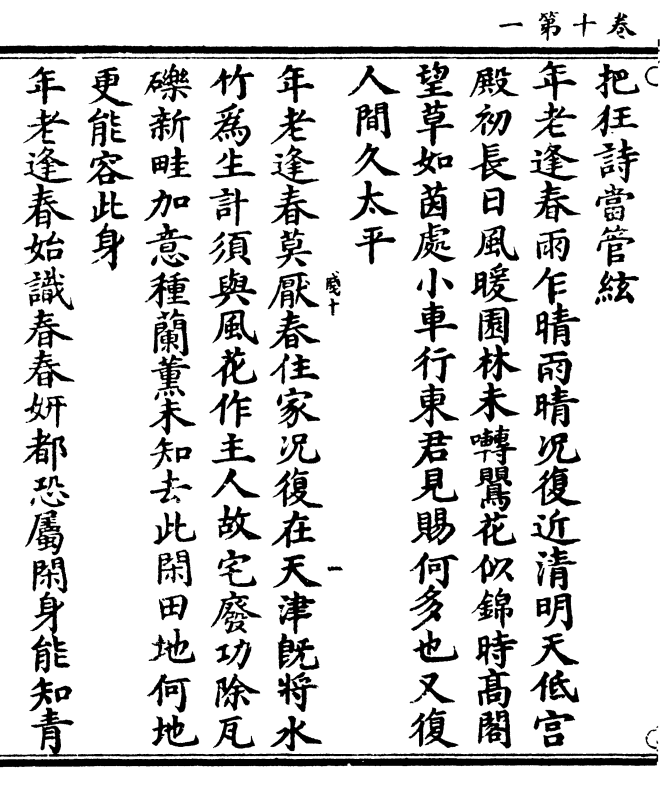 卷十第一
把狂詩當管絃
年老逢春雨乍晴雨晴况復近清明天低宫
殿初長日風暖園林未囀鶯花似錦時髙閣
望草如茵處小車行東君見賜何多也又復
人間久太平
年老逢春莫厭春住家况復在天津旣將水
竹爲生計須與風花作主人故宅廢功除瓦
礫新畦加意種蘭薰未知去此閑田地何地
更能容此身
年老逢春始識春春妍都恐屬閑身能知青